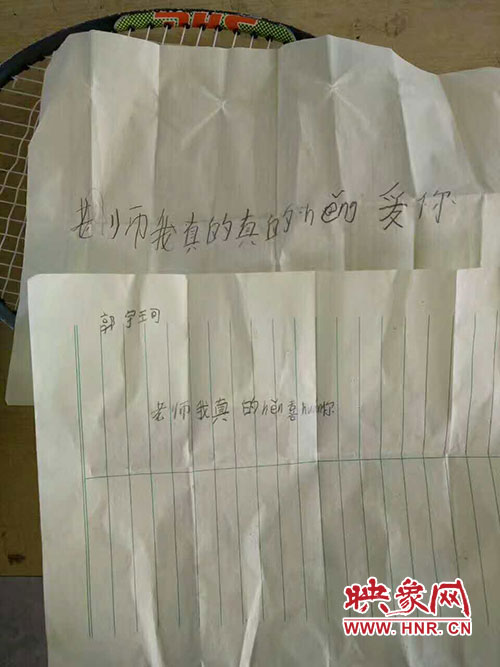 老师我真的真的hěng爱你
郭宇珂
老师我真的hěn喜huan你
映象网
WWW.HNR.CN